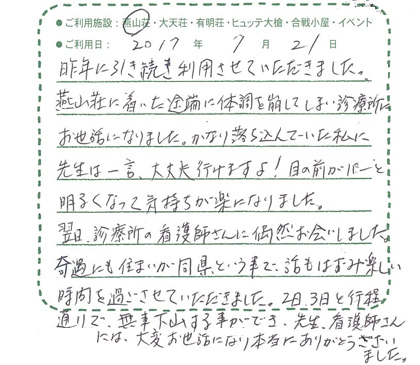 ●ご利用施設：燕山荘・大天荘・有明荘・ヒュッテ大槍・合戦小屋・イベント
●ご利用日：2017年 7月 21日
昨年に引き続き利用させていただきました。
燕山荘に着いた途端に体調を崩してしまい診療所に
お世話になりました。かなり落ち込んでいた私に
先生は一言、大丈夫行けますよ！目の前がパーと
明るくなって気持ちが楽になりました。
翌日、診療所の看護師さんに偶然お会いしました。
奇遇にも住まいが同県という事で、話もはずみ楽しい
時間を過ごさせていただきました。2日、3日と行程
通りで、無事下山する事ができ、先生、看護師さん
には、大変お世話になり本当にありがとうござい
ました。